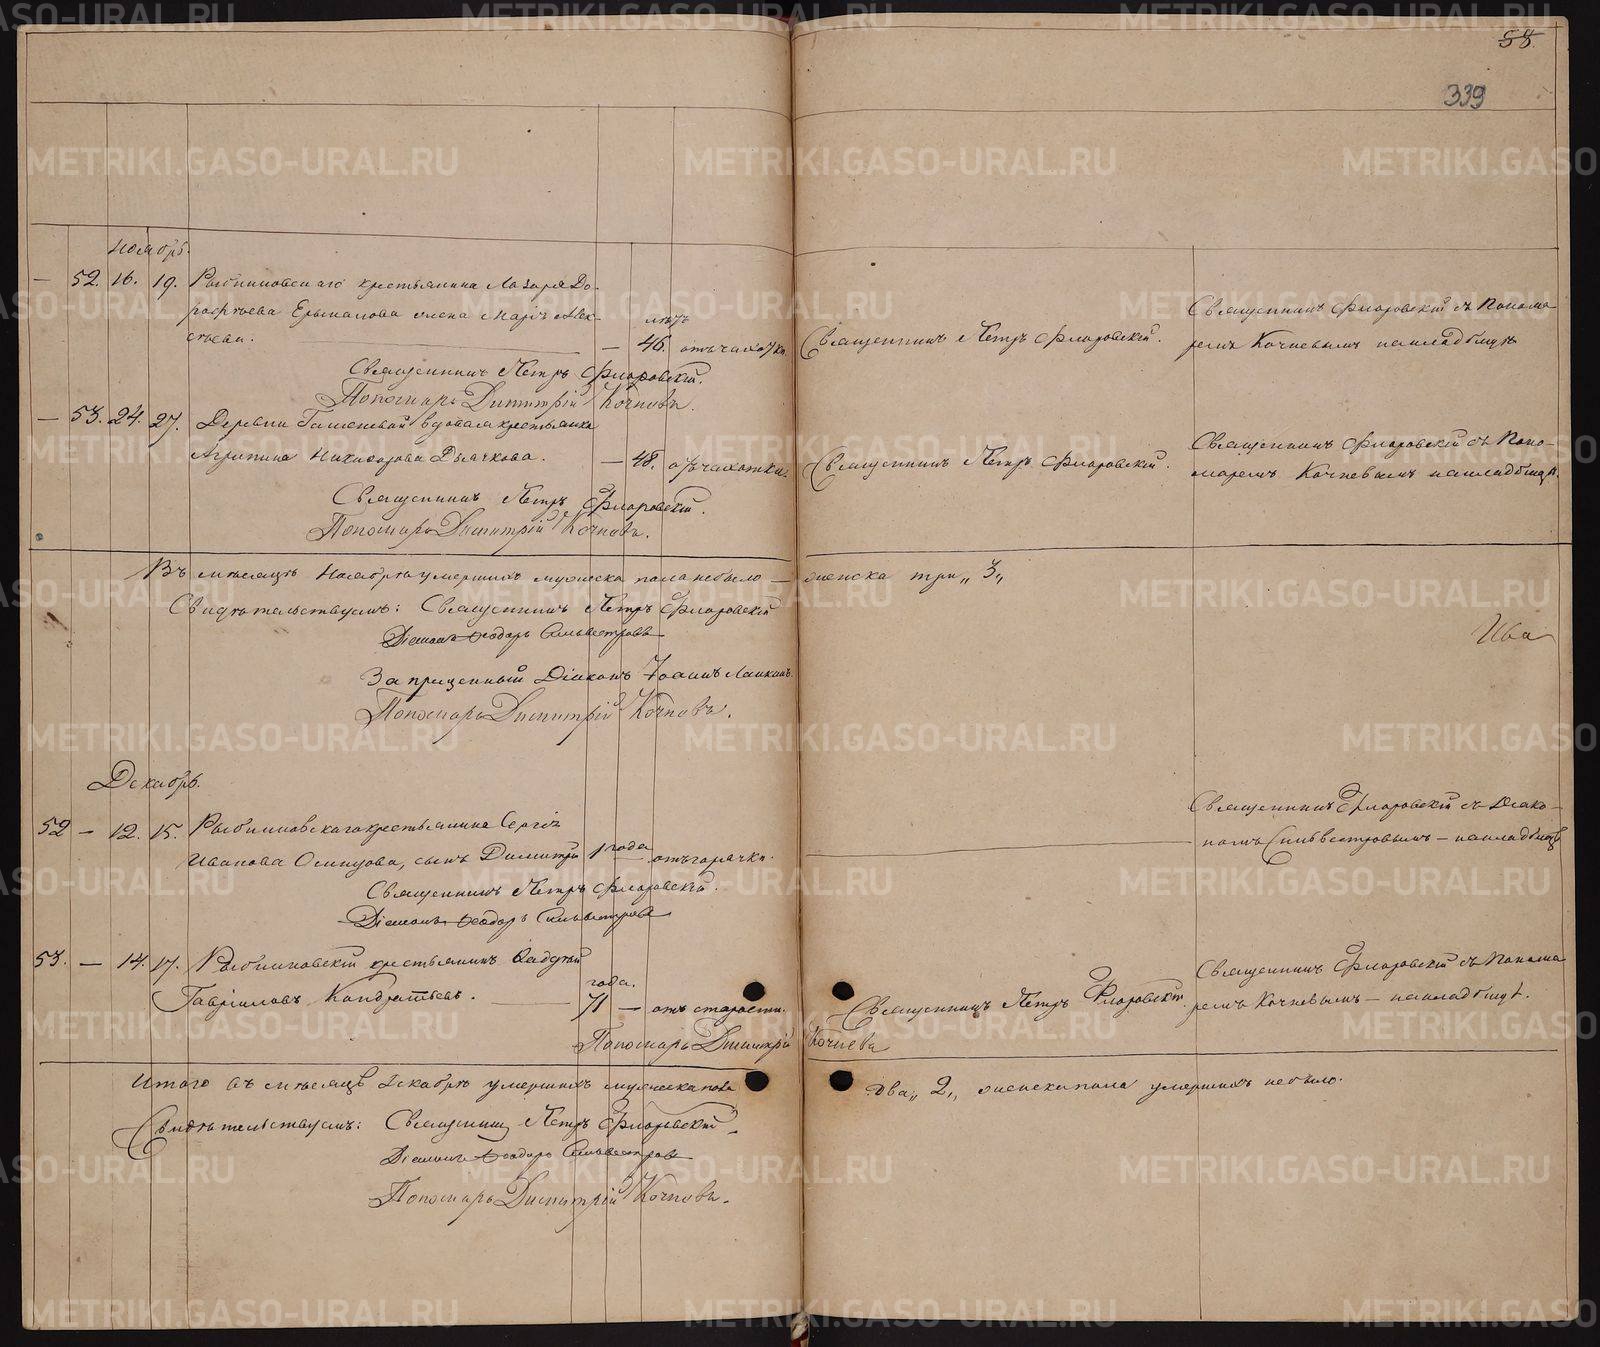 55.
339
Ноябрь.
— 52. 16. 19. Рыбинскаго крестьянина Лазаря До-
рофѣева Ермалова жена Марія Алек-
сѣева. — лѣтъ 46. отъ чахотки. Священникъ Петръ Флоровскій. Священникъ Флоровскій съ Понома
ремъ Кочневымъ на кладбищѣ
Священникъ Петръ Флоровскій.
Пономарь Димитрій Кочневъ.
— 53. 24. 27. Деревни вдова крестьянка
Агрипина Никифорова Дьячкова. — 48. отъ чахотки. Священникъ Петръ Флоровскій. Священникъ Флоровскій съ Поно-
маремъ Кочневымъ на кладбищѣ.
Священникъ Петръ Флоровскій.
Пономарь Димитрій Кочневъ.
Въ мѣсяцѣ Ноябрѣ умершихъ мужеска пола небыло — женска три „3„
Свидѣтельствуемъ: Священникъ Петръ Флоровскій
Ива
Діаконъ Ѳеодоръ Сильвестровъ
Запрещенный Діаконъ Іоаннъ
Пономарь Димитрій Кочневъ.
Декабрь.
52 — 12. 15. крестьянина Сергія
Иванова Осинцова, сынъ Димитрій 1 года — отъ горячки. Священникъ Флоровскій съ Діако-
номъ Сильвестровымъ — на кладбищѣ
Священникъ Петръ Флоровскій.
Діаконъ Ѳеодоръ Сильвестровъ
53. — 14. 17. крестьянинъ Фадѣй
Гавріиловъ Кондратьевъ. — года. 71 — отъ старости. Священникъ Петръ Флоровскій. Священникъ Флоровскій съ Понома
ремъ Кочневымъ — на кладбищѣ.
Пономарь Димитрій Кочневъ
Итого въ мѣсяцѣ Декабрѣ умершихъ мужеска пола Два „2„ женска пола умершихъ небыло.
Свидѣтельствуемъ: Священникъ Петръ Флоровскій
Діаконъ Ѳеодоръ Сильвестровъ
Пономарь Димитрій Кочневъ.
METRIKI.GASO-URAL.RU